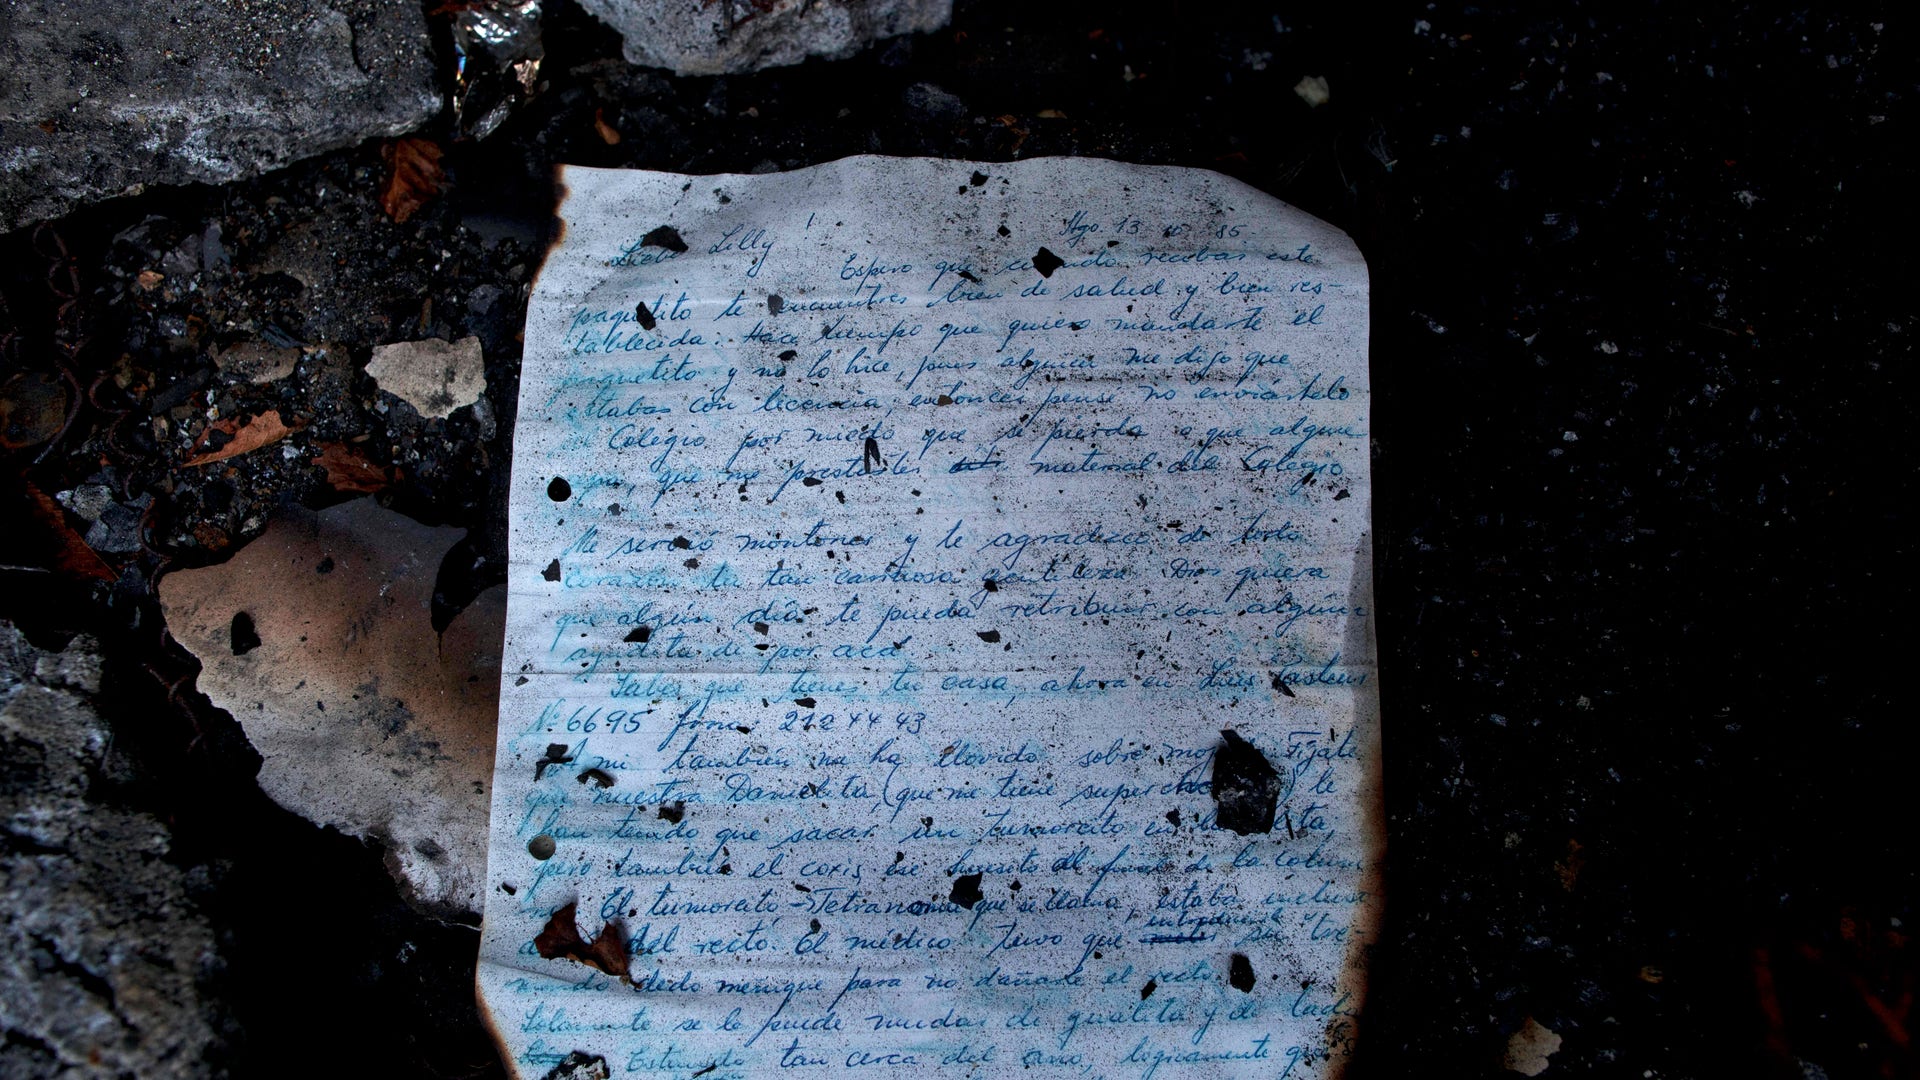 Ago 13 85
Liebe Lilly !
Espero que cuando recibas este
paquetito te encuentres bien de salud y bien res-
tablecida. Hace tiempo que quiero mandarte el
paquetito y no lo hice, pues alguien me dijo que
estabas con licencia, entonces pensé no enviártelo
al Colegio por miedo que se pierda o que alguien
que me prestaste material del Colegio
Me sirvió montones y te agradezco de todo
corazón tu tan cariñosa gentileza. Dios quiera
que algún día te pueda retribuir con alguna
ayudita de por acá
Sabes que tienes tu casa, ahora en Luis Pasteur
Nº 6695 fono: 212 44 43
A mi también me ha llovido sobre mojado. Fíjate
que nuestra Danielita, (que me tiene super ) le
han tenido que sacar un tumorcito en la
pero también el coxis ese huesito al final de la colum
na. El tumorcito - Tetranoma que se llama, estaba incluso
del recto. El médico tuvo que introducirle su tre-
mendo dedo meñique para no dañarle el recto.
Solamente se le puede mudar de guatita y de lado
Estando tan cerca del ano, logicamente que